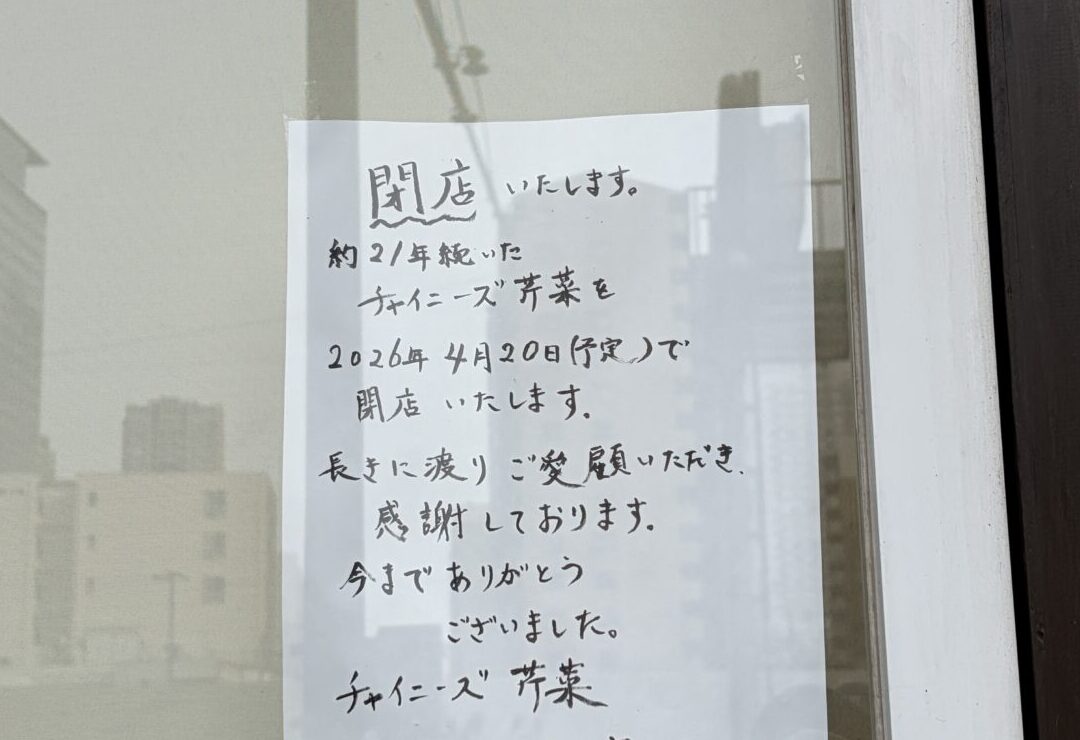 閉店 いたします。
約21年続いた
チャイニーズ 芹菜を
2026年 4月20日(予定)で
閉店 いたします.
長きに渡り ご愛顧いただき、
感謝しております.
今までありがとう
ございました。
チャイニーズ 芹菜